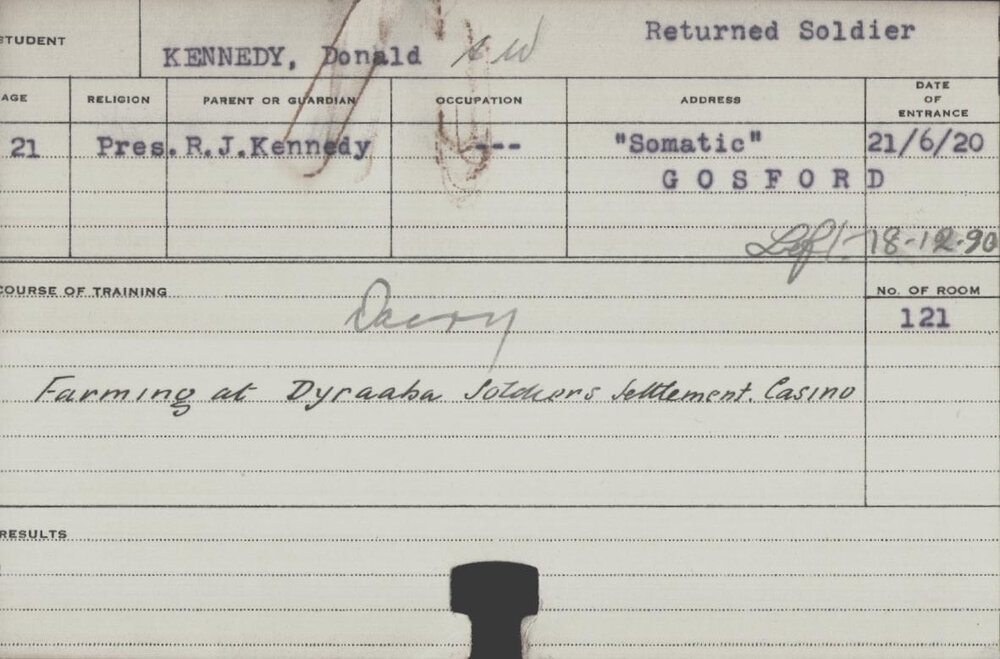 Returned Soldier
STUDENT KENNEDY, Donald
AGE RELIGION PARENT OR GUARDIAN OCCUPATION ADDRESS DATE OF ENTRANCE
21 Pres. R.J.Kennedy --- "Somatic" 21/6/20
GOSFORD
Left. 18-12-20
COURSE OF TRAINING No. OF ROOM
Dairy 121
Farming at Dyraaba Soldiers Settlement. Casino
RESULTS